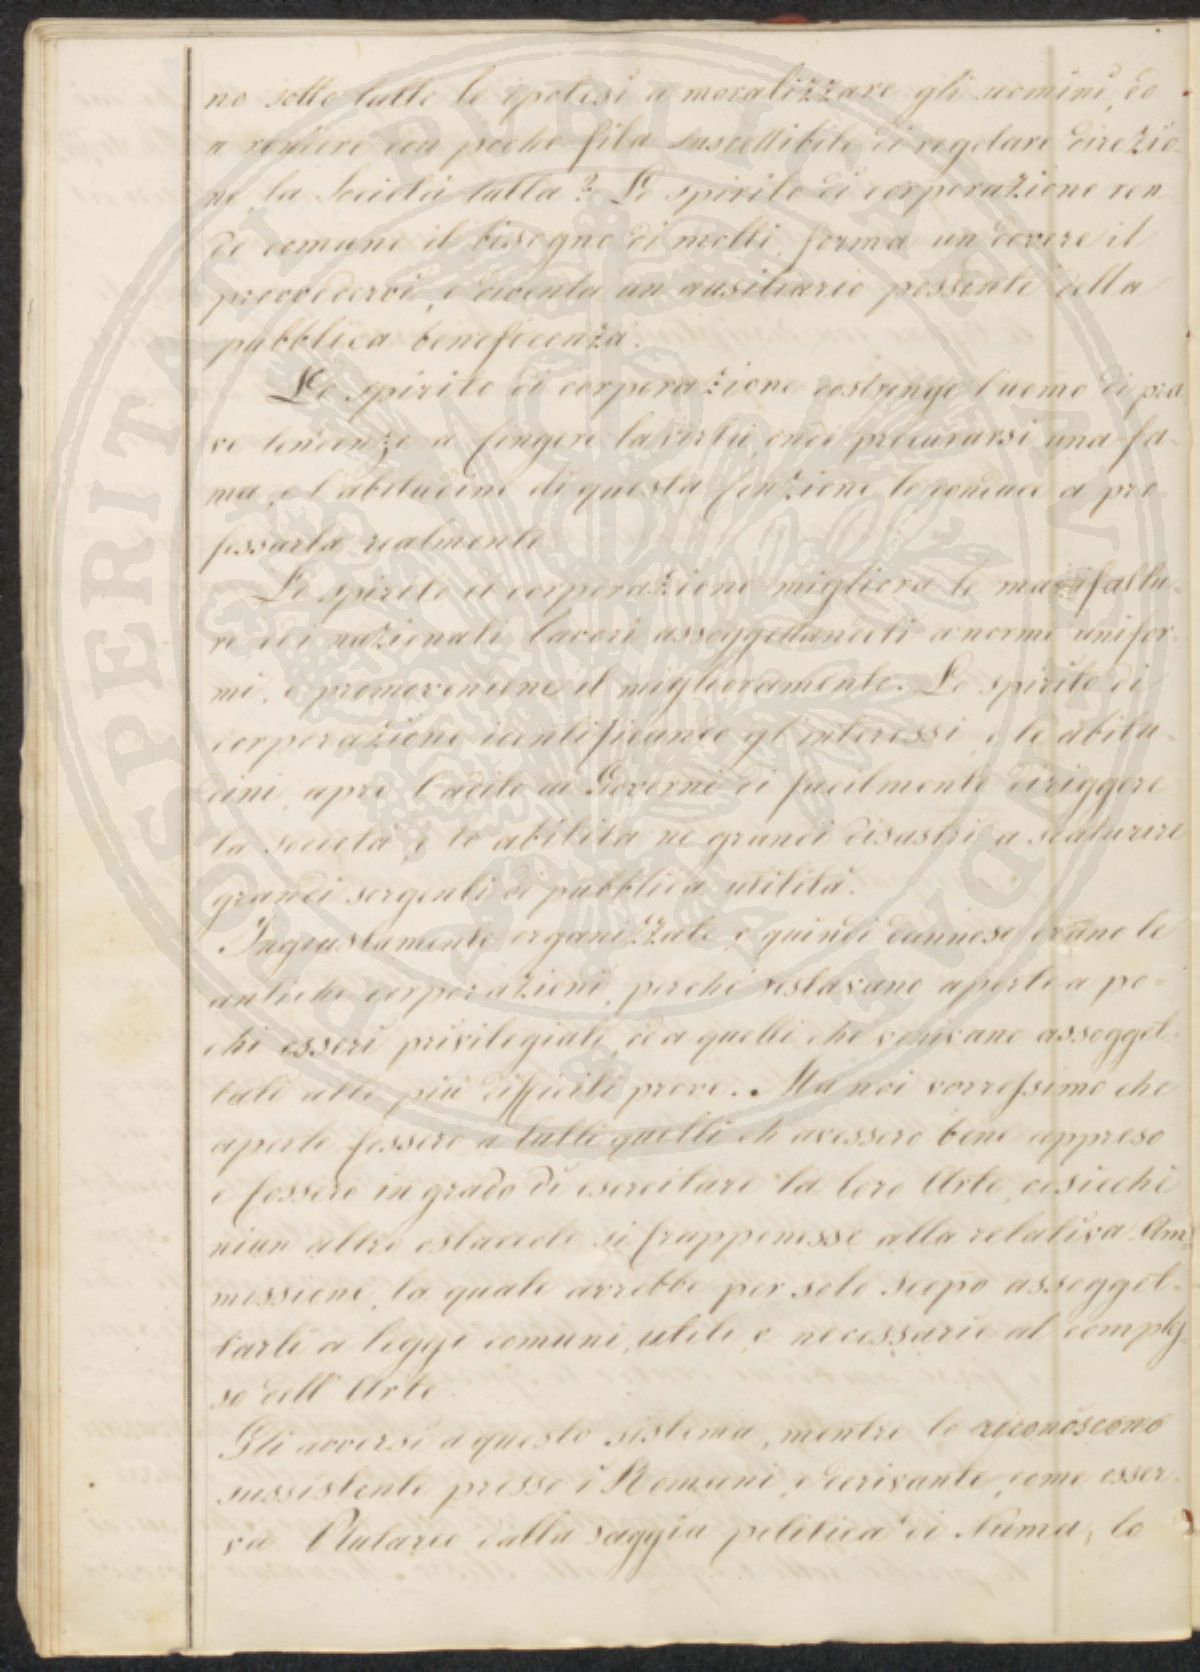 no sotto tutte le ipotesi a moralizzare gli uomini, ed
a rendere con poche fila suscettibile di regolare direzio-
ne la Società tutta? Lo spirito di corporazione ren
de comune il bisogno di molti, forma un dovere il
provvedervi, e diventa un ausiliario possente della
pubblica beneficenza.
Lo spirito di corporazione costringe l'uomo di pra
ve tendenze a fingere la virtù, onde procurarsi una fa-
ma, e l'abitudine di questa finzione lo conduce a pro-
fessarla realmente.
Lo spirito di corporazione migliora le manifattu-
re, ed i nazionali lavori assoggettandoli a norme unifor-
mi, e promovendone il miglioramento. Lo spirito di
corporazione identificando gl'interessi, e le abitu-
dini, apre l'adito ai Governi di facilmente diriggere
la società, e lo abilita ne grandi disastri a scaturire
grandi sorgenti di pubblica utilità.
Ingiustamente organizzate, e quindi dannose erano le
antiche corporazioni, perché restavano aperte a po-
chi esseri privilegiati, ed a quelli che venivano assogget-
tati alle più difficili prove. Ma noi vorressimo che
aperte fossero a tutti quelli ch'avessero bene appreso
e fossero in grado di esercitare la loro Arte, cosicché
niun altro ostacolo si frapponesse alla relativa Am-
missione, la quale avrebbe per solo scopo assogget-
tarli a leggi comuni, utili, e necessarie al comples-
so dell'Arte.
Gli avversi a questo sistema, mentre lo riconoscono
sussistente presso i Romani, e derivante, come osser-
va Plutarco dalla saggia politica di Numa, lo
PROSPERITATI PUBLICAE